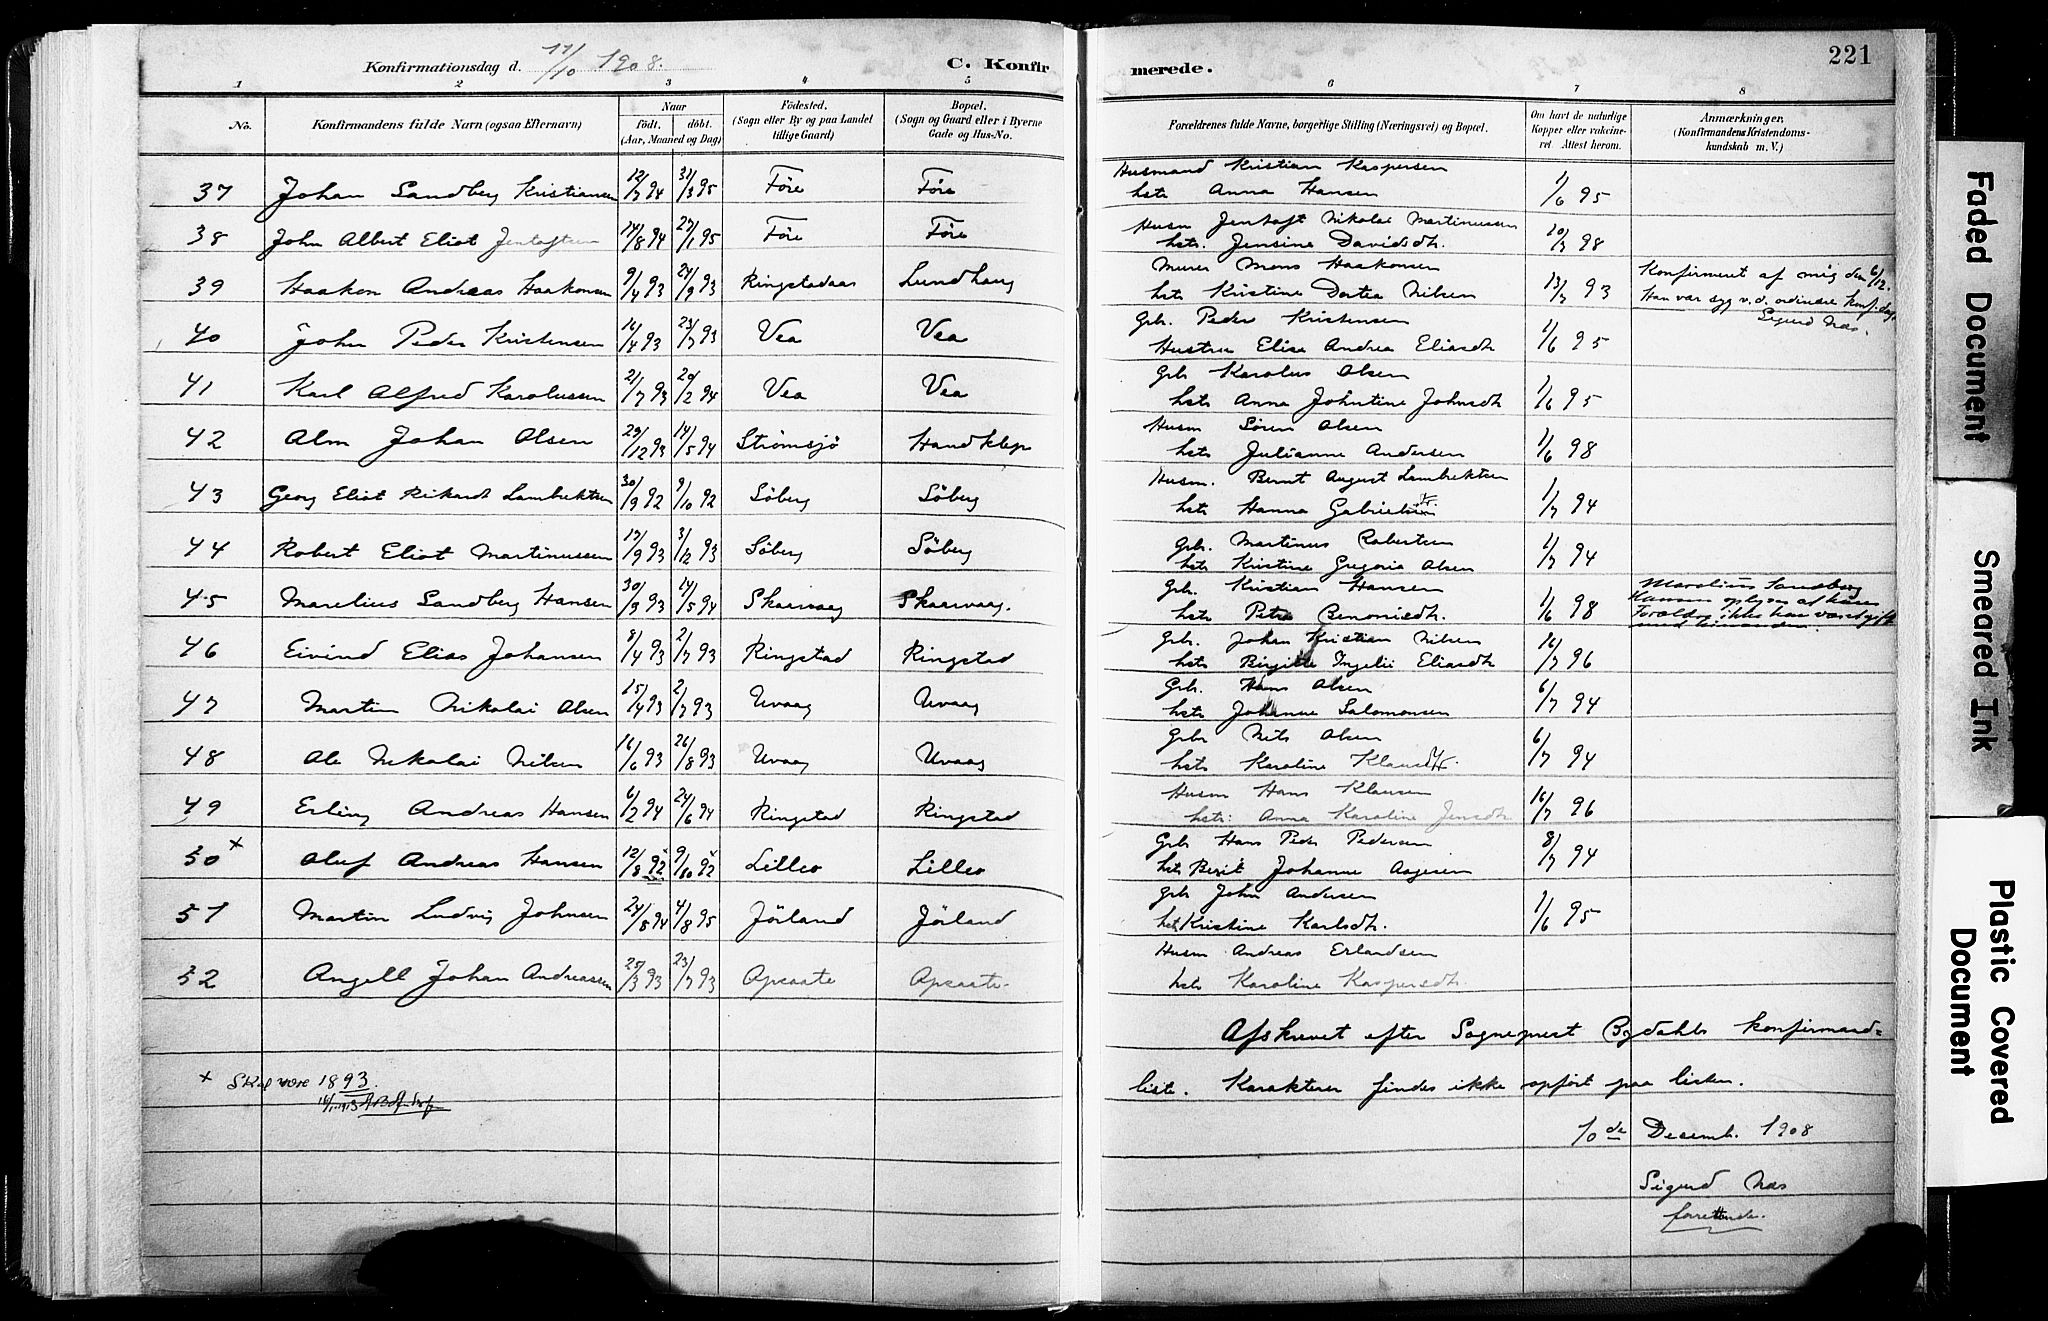 Konfirmationsdag d. 11/10 1908.
C. Konfirmerede.
221
1 2 3 4 5 6 7 8
No.
Konfirmandens fulde Navn (ogsaa Efternavn)
Naar
födt. döbt.
(Aar, Maaned og Dag)
Födested.
(Sogn eller By og paa Landet
tillige Gaard)
Bopæl.
(Sogn og Gaard eller i Byerne
Gade og Hus-No.
Forældrenes fulde Navne, borgerlige Stilling (Næringsvei) og Bopæl.
Om havt de naturlige
Kopper eller vakcine-
ret. Attest herom.
Anmærkninger.
(Konfirmandens Kristendoms-
kundskab m. V.)
37 Johan Sandberg Kristiansen 12/7 94 31/3 95 Före Före Husmand Kristian Kaspersen
hstr Anna Hansen 1/6 95
38 John Albert Eliot Jentoftsen 14/8 94 27/1 95 Före Före Husm Jentoft Nikolai Martinussen
hstr. Jensine Davidsdtr. 10/7 98
39 Haakon Andreas Haakonsen 9/4 93 24/9 93 Ringstadaas Lundhaug Murer Mons Haakonsen
hstr Kristine Dortea Nilsen 13/7 93 Konfirmeret af mig den 6/12.
Han var syg v. d. ordinære konf.dag.
Sigurd Næs.
40 John Peder Kristensen 16/4 93 23/7 93 Vea Vea Grb. Peder Kristensen
Hustru Elise Andrea Eliasdtr 1/6 95
41 Karl Alfred Karolussen 21/7 93 20/2 94 Vea Vea Grb Karolus Olsen
hstr Anna Johntine Johnsdtr 1/6 95
42 Alm Johan Olsen 29/12 93 14/5 94 Strömsjö Handklep Husm Sören Olsen
hstr Julianne Andersen 1/6 98
43 Georg Eliot Rikardt Lambrektsen 30/9 92 9/10 92 Söberg Söberg Husm. Bernt August Lambrektsen
hstr Hanna Gabrielsen 1/7 94
44 Robert Eliot Martinussen 17/9 93 3/12 93 Söberg Söberg Grb. Martinus Robertsen
hstr Kristine Gregoria Olsen 1/7 94
45 Marelius Sandberg Hansen 30/9 93 14/5 94 Skaarvaag Skaarvaag. Grb. Kristian Hansen
hstr Petra Benonisdtr. 1/6 98 Marelius Sandberg
Hansen oplyser at hans
Forældre ikke har været gift
med hinanden.
46 Eivind Elias Johansen 8/4 93 2/7 93 Ringstad Ringstad Grb. Johan Kristian Nilsen
hstr Birgitte Ingelii Eliasdtr 16/7 96
47 Martin Nikolai Olsen 15/4 93 2/7 93 Uvaag Uvaag Grb. Hans Olsen
hstr Johanne Salomonsen 6/7 94
48 Ole Nikolai Nilsen 16/6 93 26/8 93 Uvaag Uvaag Grb Nils Olsen
hstr Karoline Klausdtr. 6/7 94
49 Erling Andreas Hansen 6/2 94 24/6 94 Ringstad Ringstad Husm Hans Klausen
hstr: Anna Karoline Jensdtr 16/7 96
50 x Oluf Andreas Hansen 12/8 92 9/10 92 Lilleö Lilleö Grb Hans Peder Pedersen
hstr Berit Johanne Aagesen 8/7 94
51 Martin Ludvig Johnsen 24/5 94 4/8 95 Jörland Jörland Grb John Andersen
hstr Kristine Karlsdtr. 1/6 95
52 Angell Johan Andreassen 25/3 93 23/7 93 Apsaate Apsaate Husm Andreas Erlandsen
hstr Karoline Kaspersdtr.
Afskrevet efter Sogneprest Bygdahls konfirmand-
liste. Karakterer findes ikke opfört paa listen.
10de Decemb. 1908
Sigurd Næs
forrettende.
x Skal være 1893.
Faded Document
Smeared Ink
Plastic Covered
Document